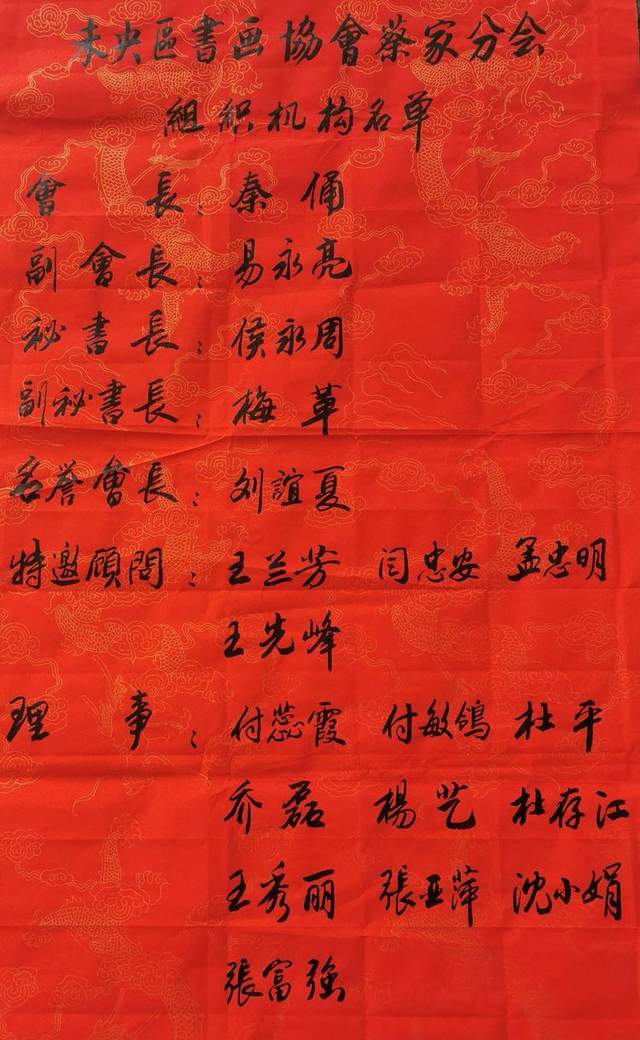 未央區書画協會蔡家分会
組織机构名单
會長：秦俑
副會長：易永亮
秘書長：侯永周
副秘書長：梅革
名誉會長：刘誼夏
特邀顾問：王兰芳 闫忠安 孟忠明
王先峰
理事：付蕊霞 付敏鸽 杜平
乔磊 楊艺 杜存江
王秀丽 張亚萍 沈小娟
張富強